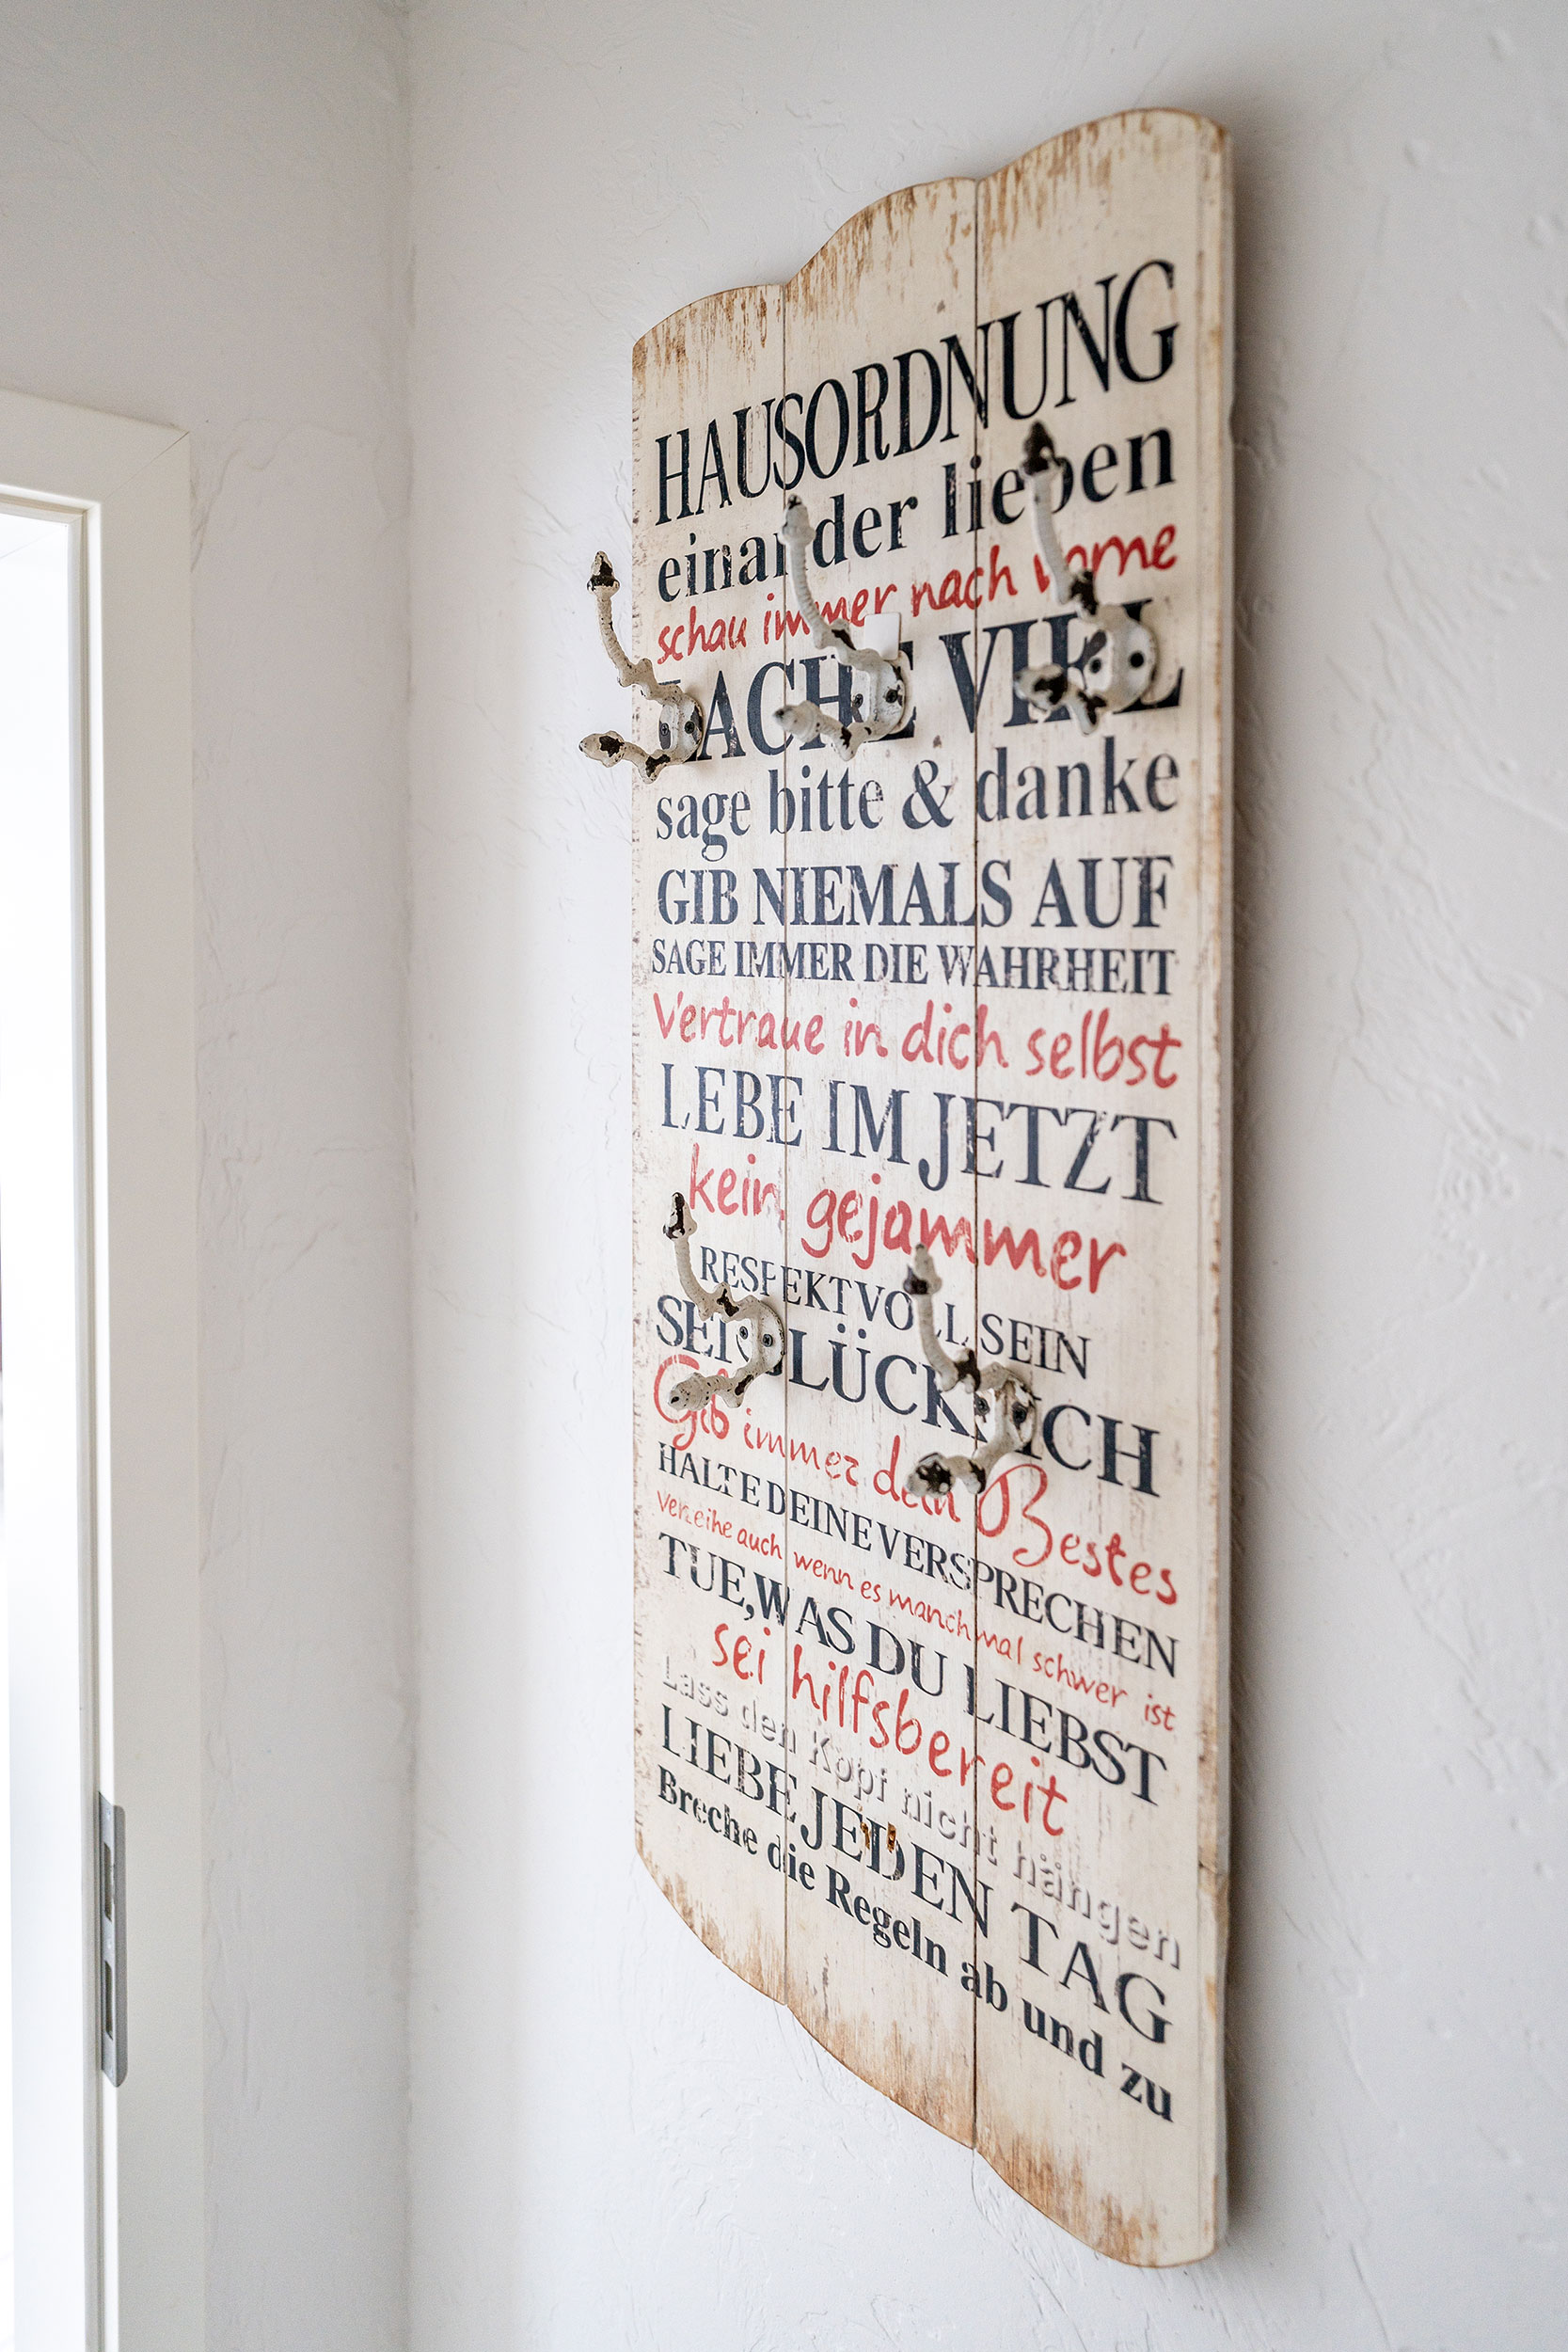 HAUSORDNUNG
einander lieben
schau immer nach vorne
LACHE VIEL
sage bitte & danke
GIB NIEMALS AUF
SAGE IMMER DIE WAHRHEIT
Vertraue in dich selbst
LEBE IM JETZT
kein gejammer
RESPEKTVOLL SEIN
SEI GLÜCKLICH
Gib immer dein Bestes
HALTE DEINE VERSPRECHEN
verzeihe auch wenn es manchmal schwer ist
TUE, WAS DU LIEBST
sei hilfsbereit
Lass den Kopf nicht hängen
LIEBE JEDEN TAG
Breche die Regeln ab und zu